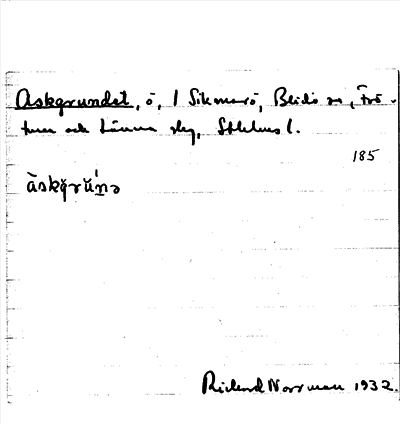 Askgrundet, ö, 1 Sikmarö, Blidö sn, Frö-
tuna och Länna skg, Sthlms l.
185
àskgrŭ́nə
Richard Norrman 1932.